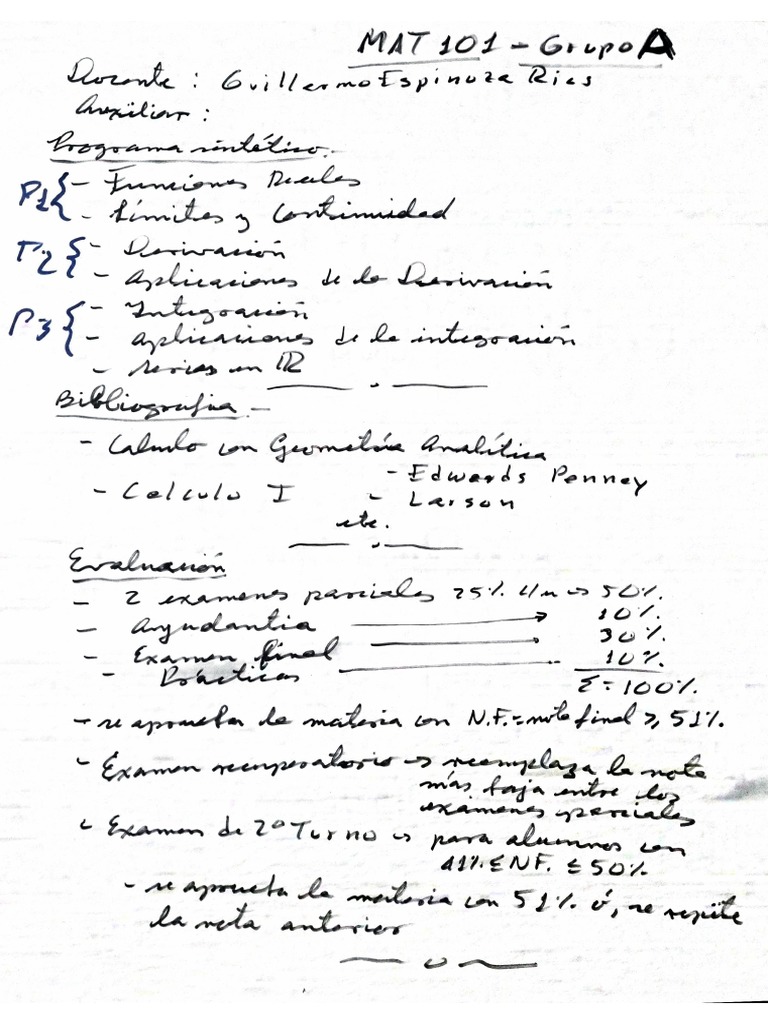 MAT 101 - Grupo A
Docente : Guillermo Espinoza Rios
Auxiliar :
Programa sintético.-
P1 { - Funciones Reales
- Límites y Continuidad
P2 { - Derivación
- Aplicaciones de la Derivación
P3 { - Integración
- Aplicaciones de la integración
- series en ℝ
Bibliografia.-
- Calculo con Geometría Analítica
- Edwards Penney
- Calculo I - Larson
etc.
Evaluación
- 2 examenes parciales 25% c/u ⇒ 50%.
- Ayudantia → 10%.
- Examen final → 30%.
- Prácticas — 10%.
Σ = 100%.
- se aprueba la materia con N.F. = nota final ≥ 51%.
- Examen recuperatorio ⇒ reemplaza la nota
más baja entre los
exámenes parciales
- Examen de 2º Turno ⇒ para alumnos con
41% ≤ N.F. ≤ 50%.
- se aprueba la materia con 51% ó, se repite
la nota anterior